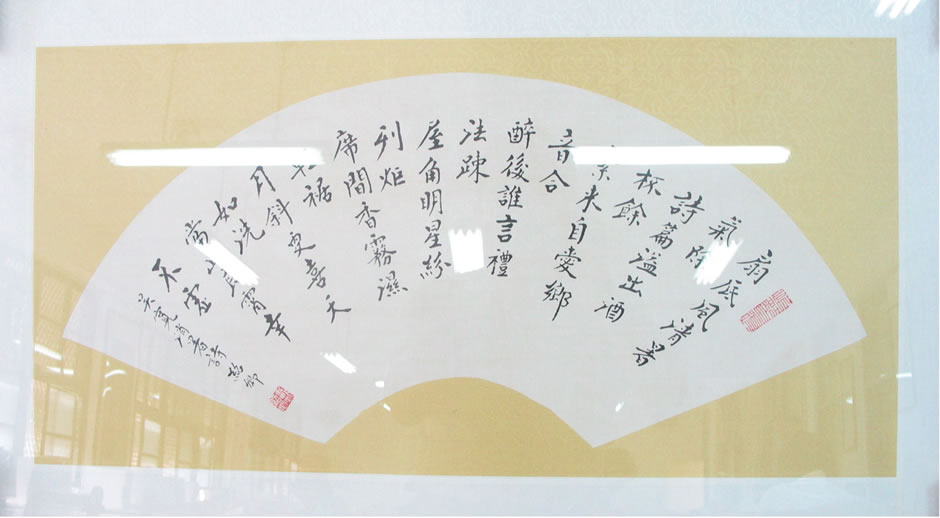 扇底風清暑
氣除
詩篇溢出酒
杯餘
來自愛鄉
音合
醉後誰言禮
法疎
屋角明星紛
列炬
席間香霧濕
裾
月斜更喜天
如洗
當良宵幸
不虛